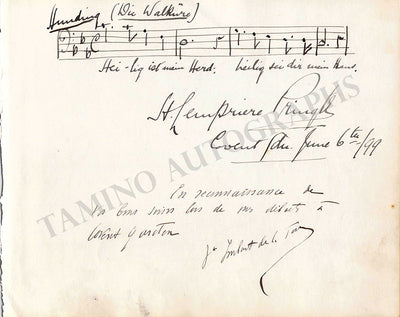 Hunding (Die Walküre)
Hei-lig ist mein Herd. heilig sei dir mein Haus.
H. Lempriere Pringle
Covent Gdn June 6th/99
TAMINO AUTOGRAPHS
En reconnaissance de
ses bons soins lors de mes débuts à
Covent garden
Imbart de la Tour